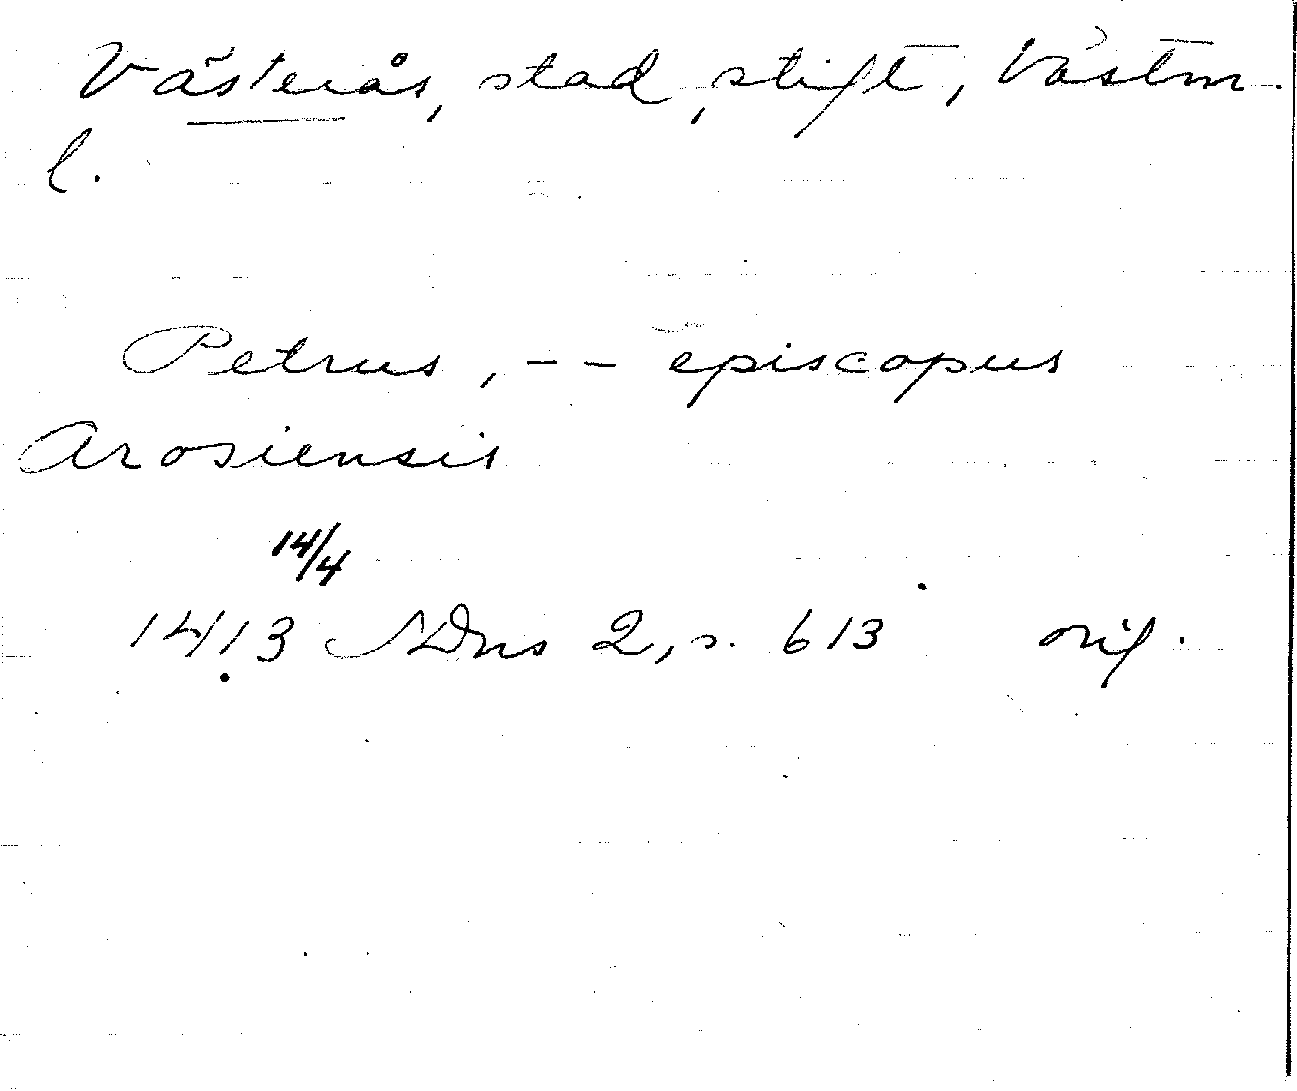 Västerås, stad, stift, Västm.
l.
Petrus, -- episcopus
Arosiensis
14/4
1413 SDns 2, s. 613 orig.